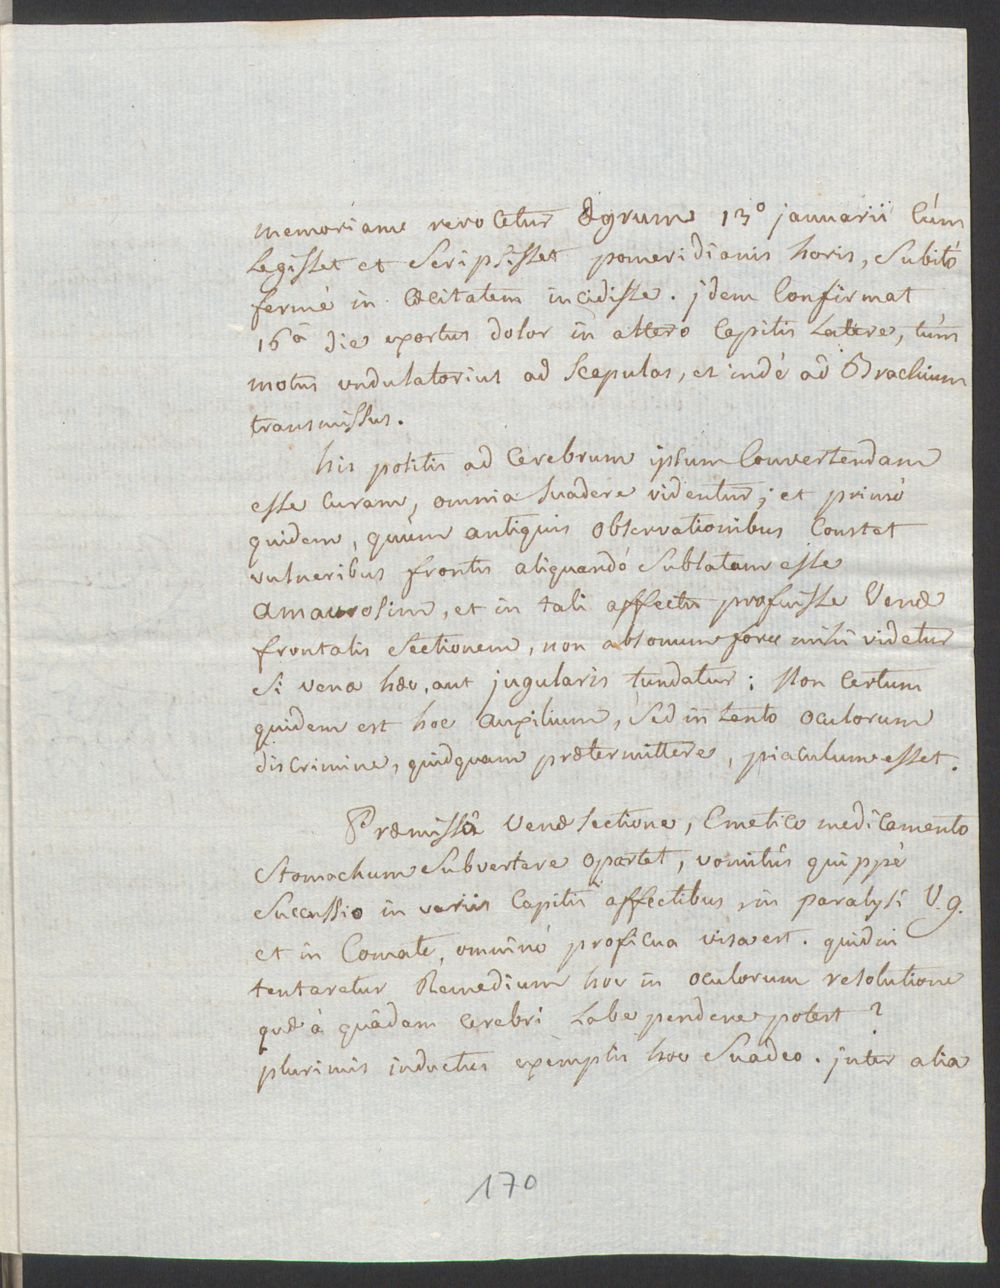 memoriam revocetur Ægrum 13° januarii cúm
Legisset et Scripsisset pomeridianis horis, Subitò
fermè in Cæcitatem incidisse. jdem Confirmat
16â die exortus dolor in altero Capitis Latere, túm
motus undulatorius ad Scapulas, et indè ad Brachium
transmissus.
his positis ad Cerebrum ipsum Convertendam
esse Curam, omnia Suadere videntur; et primò
quidem, quùm antiquis observationibus Constat
vulneribus frontis aliquandó Sublatam esse
amaurosim, et in tali affectu profuisse Venæ
frontalis Sectionem, non absonum fore mihi videtur
Si vena hæc, aut jugularis tundatur: Non Certum
quidem est hoc auxilium, Sed in tanto oculorum
discrimine, quidquam prætermittere, piaculum esset.
Præmissâ Venæ Sectione, Emetico medicamento
Stomachum Subvertere oportet, vomitûs quippè
Succussio in variis Capitis affectibus, in paralysi V. g.
et in Comate, omninò proficua visa est. quidni
tentaretur Remedium hoc in oculorum resolutione
quæ à quâdam Cerebri Labe pendere potest?
plurimis inductus exemplis hoc Suadeo. jnter alia
170